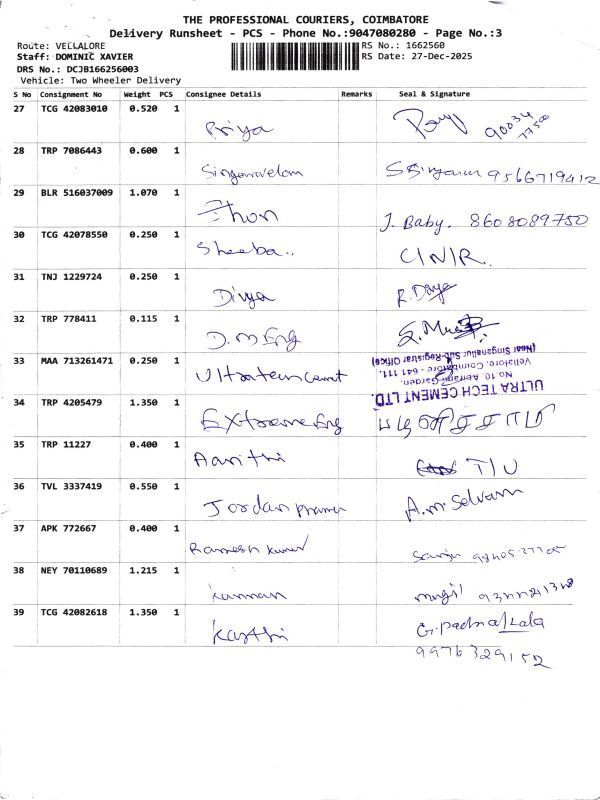 THE PROFESSIONAL COURIERS, COIMBATORE
Delivery Runsheet - PCS - Phone No.:9047080280 - Page No.:3
Route: VELLALORE RS No.: 1662560
Staff: DOMINIC XAVIER RS Date: 27-Dec-2025
DRS No.: DCJB166256003
Vehicle: Two Wheeler Delivery
S No Consignment No Weight PCS Consignee Details Remarks Seal & Signature
27 TCG 42083010 0.520 1
Priya 90034
77500
28 TRP 7086443 0.600 1
Singaravelan 9566719412
29 BLR 516037009 1.070 1
Jhon J. Baby. 8608089750
30 TCG 42078550 0.250 1
Sheeba.. C/N/R.
31 TNJ 1229724 0.250 1
Divya R. Divya
32 TRP 778411 0.115 1
D.M Eng
33 MAA 713261471 0.250 1
Ultratech Cement
ULTRA TECH CEMENT LTD.
No.10, Abirami Garden,
Vellalore, Coimbatore - 641 111.
(Near Singanallur Sub-Registrar Office)
34 TRP 4205479 1.350 1
Extreme Eng
35 TRP 11227 0.400 1
Aarithi T/U
36 TVL 3337419 0.550 1
Jordan A.M. Selvam
37 APK 772667 0.400 1
Ramesh Kumar
38 NEY 70110689 1.215 1
Kannan
39 TCG 42082618 1.350 1
Karthi G. Padma/Lala
9976329152